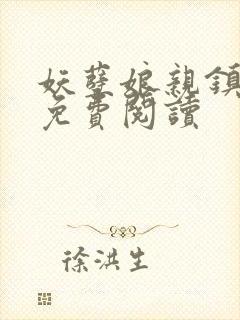 妖孽娘親鎮
免費閱讀
徐洪生